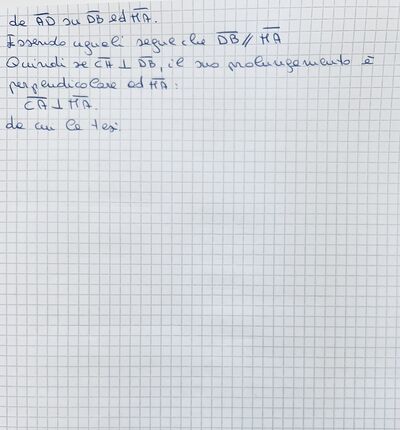 da A̅D̅ su D̅B̅ ed H̅A̅.
Essendo uguali segue che D̅B̅ // H̅A̅
Quindi se C̅A̅ ⊥ D̅B̅, il suo prolungamento è
perpendicolare ad H̅A̅:
C̅A̅ ⊥ H̅A̅.
da cui la tesi.